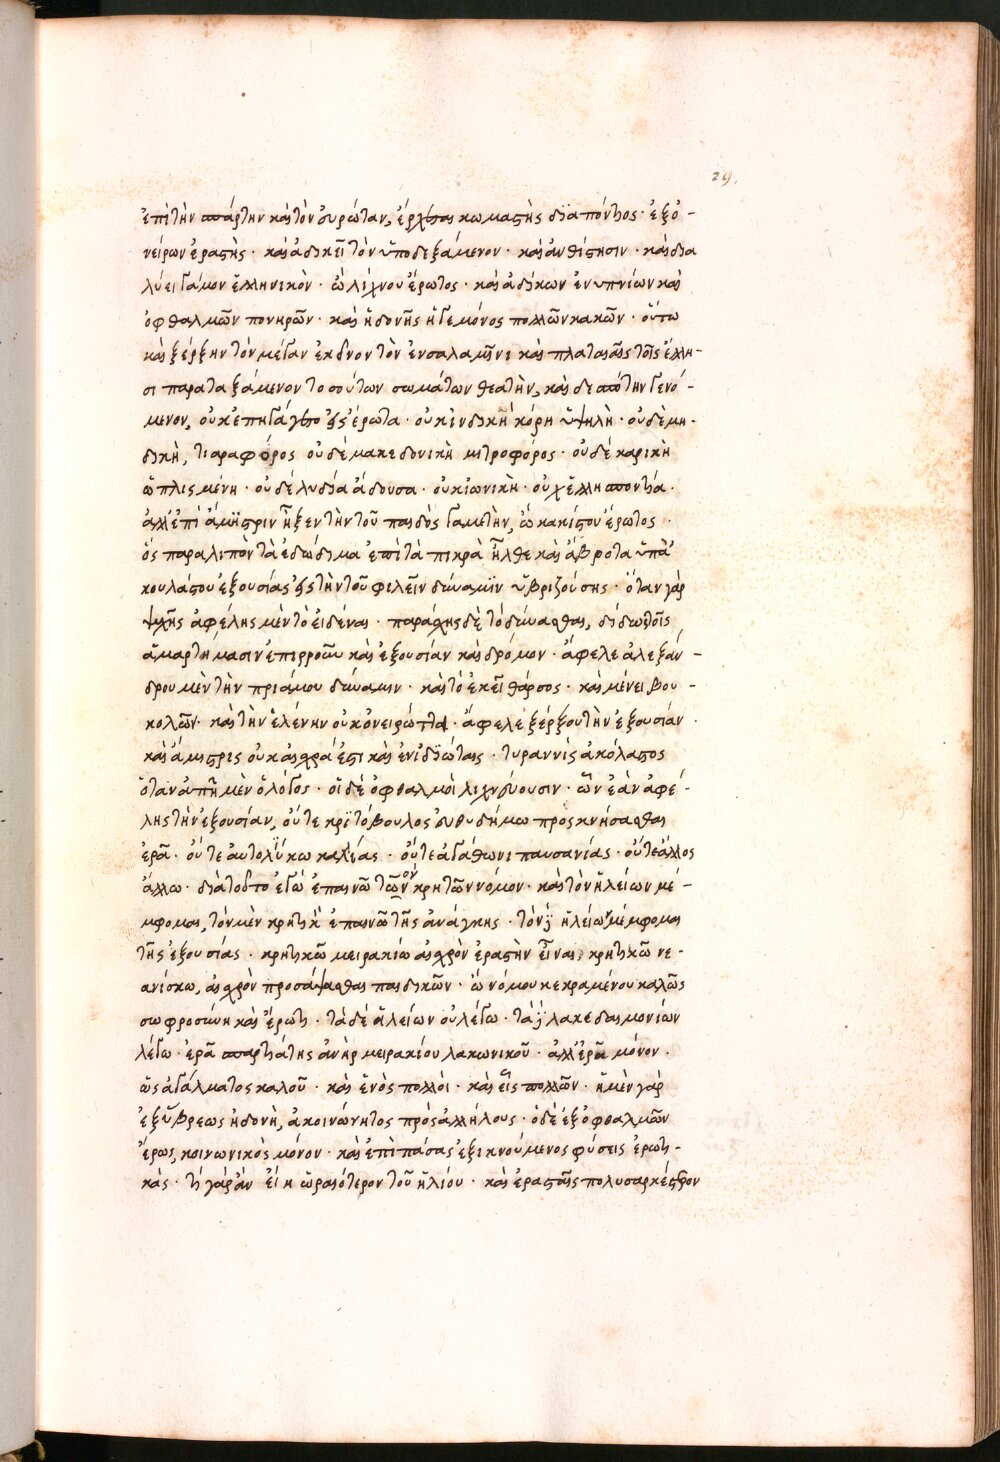 29.
ἐπὶ τὴν σπάρτην καὶ τὸν ἐυρώταν, ἔρχεται κωμαστὴς διαπόντιος · ἐξ ὀ-
νείρων ἐραστὴς · καὶ ἀδικεῖ τὸν ὑποδεξάμενον · καὶ ἀνθίστησιν · καὶ δια
λύει γάμον ἑλληνικὸν · ὢ λίχνου ἔρωτος · καὶ ἀδίκων ἐνυπνίων καὶ
ὀφθαλμῶν πονηρῶν · καὶ ἡδονῆς ἡγεμόνος πολλῶν κακῶν · οὕτω
καὶ ξέρξην τὸν μέγαν ἐκεῖνον τὸν ἐν σαλαμῖνι καὶ πλαταιαῖς τοῖς ἕλλη-
σι παραταξάμενον τοσούτων σωμάτων θεατὴν, καὶ δεσπότην γενό-
μενον, οὐκ ἐπηγάγετο εἰς ἔρωτα · οὐκ ἰνδικὴ κόρη ὑψηλὴ · οὐδὲ μη-
δικὴ, τιαραφόρος οὐδὲ μακεδονικὴ μιτροφόρος · οὐδὲ καρικὴ
ὡπλισμένη · οὐδὲ λυδία ἄδουσα · οὐκ ἰωνικὴ · οὐχ ἑλλησποντία ·
ἀλλ' ἐπὶ ἄμηστριν ἧξεν τὴν τοῦ παιδὸς γαμετὴν, ὢ κακίστου ἔρωτος ·
ὃς παραλιπὸν τὰ ἐδώδιμα ἐπὶ τὰ πικρὰ ἦλθε καὶ ἄβρωτα ὑπὰ
κολάστου ἐξουσίας εἰς τὴν τοῦ φιλεῖν δύναμιν ὑβριζούσης · ὅταν γὰρ
ψυχῆς ἀφέλης μὲν τὸ εἰδέναι · παράσχης δὲ τὸ δύνασθαι, δίδως τοῖς
ἁμαρτήμασιν ἐπιρροὴν καὶ ἐξουσίαν καὶ δρόμον · ἄφελε ἀλεξάν-
δρου μὲν τὴν πριάμου δύναμιν · καὶ τὸ ἐκεῖ θάρσος · καὶ μένει βου-
κολῶν · καὶ τὴν ἑλένην οὐκ ὀνειρώττει · ἄφελε ξέρξου τὴν ἐξουσίαν ·
καὶ ἄμηστρις οὐκ αἰσχρά ἐστι καὶ ἐν ἰδιώταις · τυραννὶς ἀκόλαστος
ὅταν ἀπῆ μὲν ὁ λόγος · οἱ δὲ ὀφθαλμοὶ λιχνεύουσιν · ὧν ἐὰν ἀφέ-
λης τὴν ἐξουσίαν, οὔτε κριτόβουλος ἐυθυδήμω προσκνήσασθαι
ἐρᾶ · οὔτε ἀυτολύκω καλλίας · οὔτε ἀγάθωνι παυσανίας · οὔτε ἄλλος
ἄλλω · διὰ τοῦτο ἐγὼ ἐπαινῶ τὸν κρητῶν νόμον · καὶ τὸν ἠλείων μέ-
μφομαι, τὸν μὲν κρητικ ἐπαινῶ τῆς ἀνάγκης · τὸν δὲ ἠλείων μέμφομαι
τῆς ἐξουσίας · κρητικῶ μειρακίω αἰσχρὸν ἐραστὴν εἶναι, κρητικῶ νε-
ανίσκω, αἰσχρὸν προσάψασθαι παιδικῶν · ὢ νόμου κεκραμένου καλῶς
σωφροσύνη καὶ ἔρωτι · τὰ δὲ ἠλείων οὐ λέγω · τὰ δὲ λακεδαιμονίων
λέγω · ἐρᾶ σπαρτιάτης ἀνὴρ μειρακίου λακωνικοῦ · ἀλλ' ἐρᾶ μόνον ·
ὡς ἀγάλματος καλοῦ · καὶ ἑνὸς πολλοὶ · καὶ εἷς πολλῶν · ἡ μὲν γὰρ
ἐξ ὕβρεως ἡδονὴ, ἀκοινώνητος πρὸς ἀλλήλους · ὁ δὲ ἐξ ὀφθαλμῶν
ἔρως, κοινωνικὸς μόνον · καὶ ἐπὶ πάσας ἐξικνούμενος φύσεις ἐρωτι-
κὰς · τί γὰρ ἂν εἴη ὡραιότερον τοῦ ἡλίου · καὶ ἐρασταῖς πολυσαρκέστερον